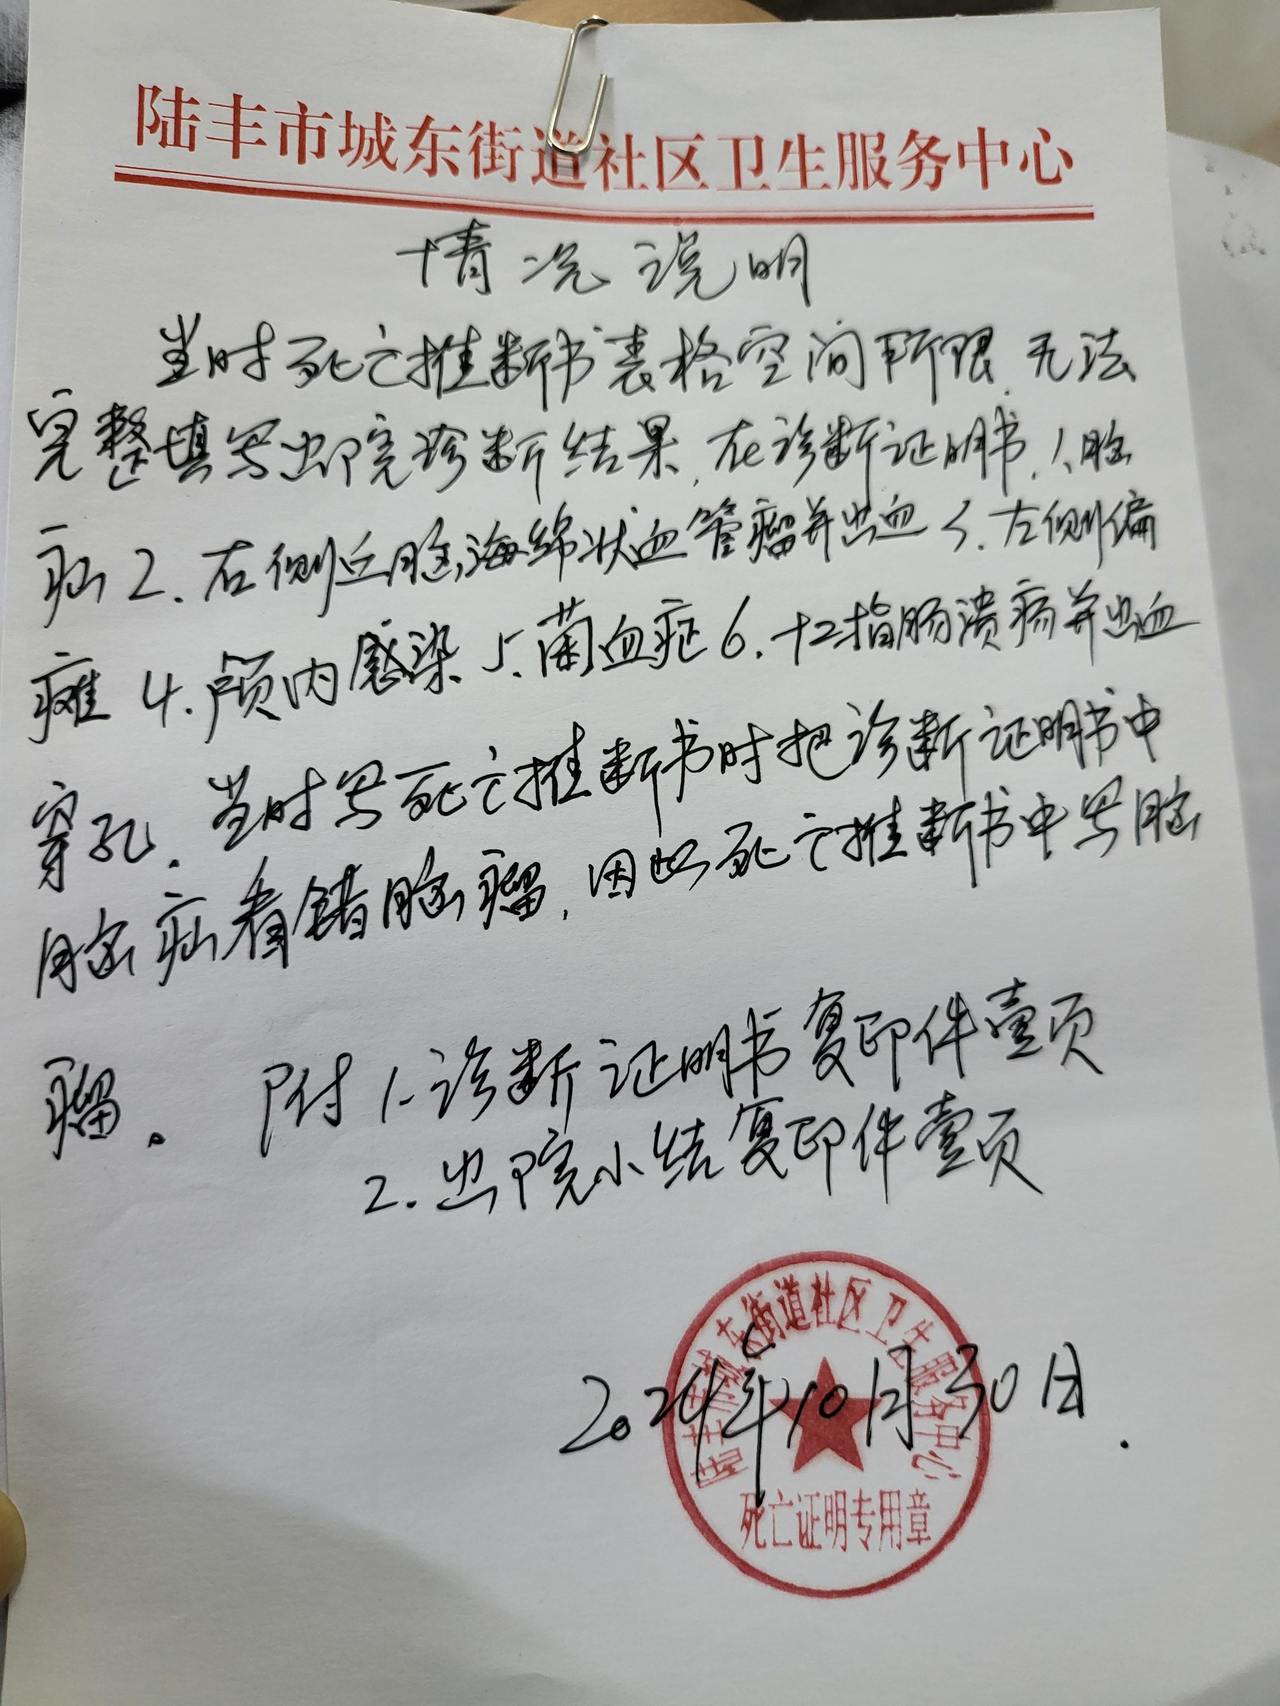 陆丰市城东街道社区卫生服务中心
情况说明
当时死亡推断书表格空间所限，无法
完整填写出院诊断结果，在诊断证明书，1、脑
疝2、右侧丘脑海绵状血管瘤并出血3、左侧偏
瘫4、颅内感染5、菌血症6、十二指肠溃疡并出血
穿孔，当时写死亡推断书时把诊断证明书中
脑疝看错脑瘤，因此死亡推断书中写脑
瘤。 附1、诊断证明书复印件壹页
2、出院小结复印件壹页
陆丰市城东街道社区卫生服务中心
2024年10月30日
死亡证明专用章